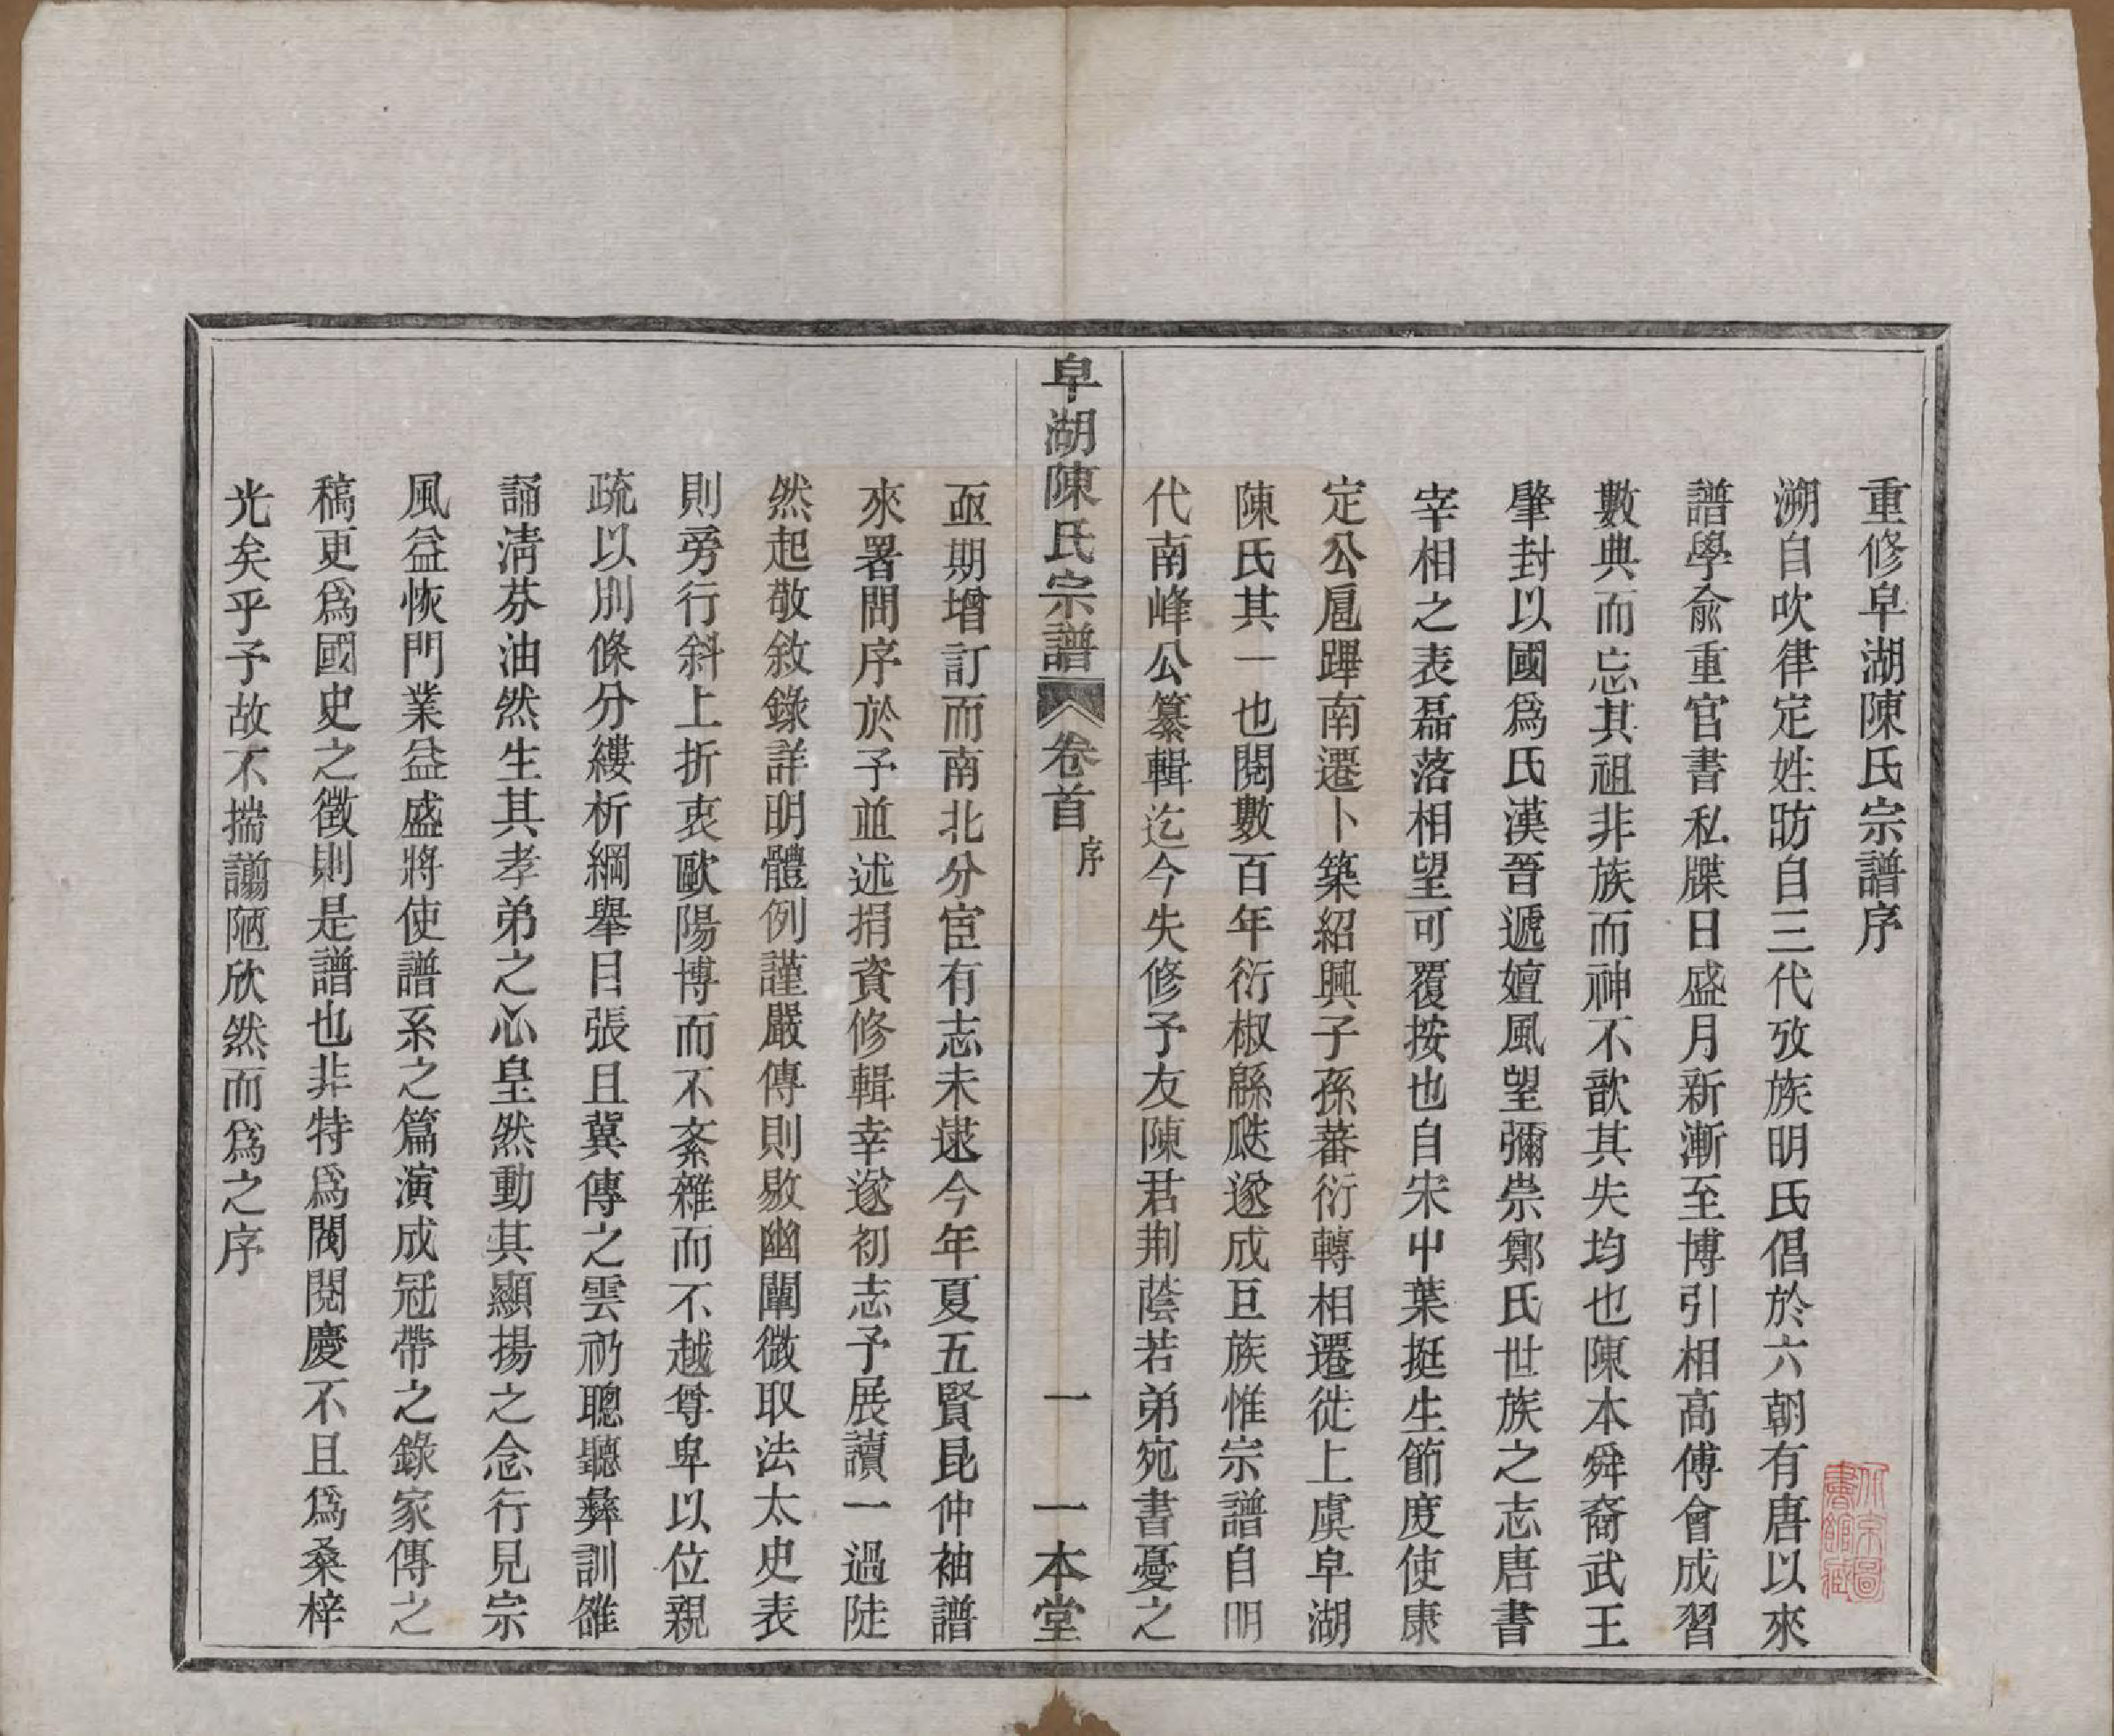 重修皁湖陳氏宗譜序
溯自吹律定姓昉自三代攷族明氏倡於六朝有唐以來
譜學俞重官書私牒日盛月新漸至博引相高傅會成習
數典而忘其祖非族而神不歆其失均也陳本舜裔武王
肇封以國爲氏漢晉遞嬗風望彌崇鄭氏世族之志唐書
宰相之表磊落相望可覆按也自宋中葉挺生節度使康
定公扈蹕南遷卜築紹興子孫蕃衍轉相遷徙上虞皁湖
陳氏其一也閱數百年衍椒緜瓞遂成巨族惟宗譜自明
代南峰公纂輯迄今失修予友陳君荆蔭若弟宛書憂之
皁湖陳氏宗譜 卷首 序 一 一本堂
亟期增訂而南北分宦有志未逮今年夏五賢昆仲袖譜
來署問序於予並述捐資修輯幸遂初志予展讀一過陡
然起敬敘錄詳明體例謹嚴傳則敭幽闡微取法太史表
則旁行斜上折衷歐陽博而不紊雜而不越尊卑以位親
疏以別條分縷析綱舉目張且冀傳之雲礽聰聽彝訓雒
誦清芬油然生其孝弟之心皇然動其顯揚之念行見宗
風益恢門業益盛將使譜系之篇演成冠帶之錄家傳之
稿更爲國史之徵則是譜也非特爲閥閱慶不且爲桑梓
光矣乎予故不揣譾陋欣然而爲之序